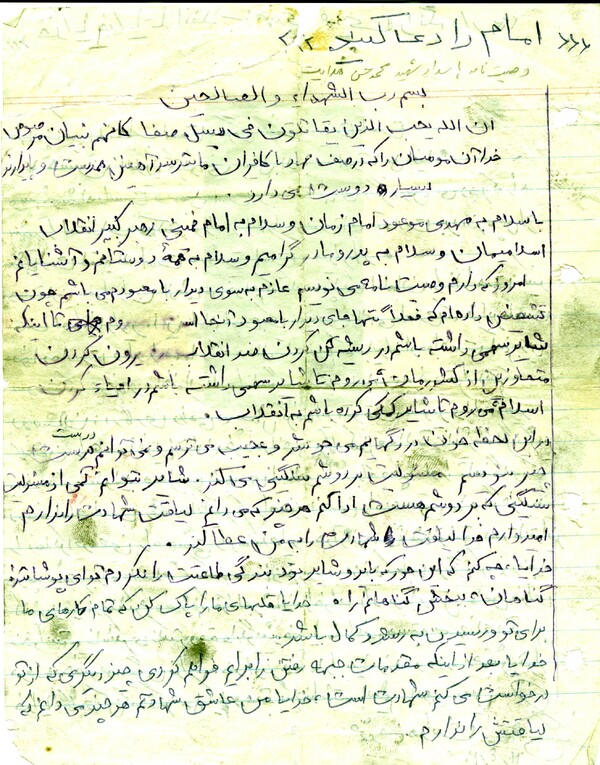 >>> امام را دعا کنید
وصیت نامه پاسدار شهید محمد حسن
بسم رب الشهداء والصالحین
ان الله یحب الذین یقاتلون فی سبیل صفا کانهم بنیان مرصوص
خدا آن مومنان را که در صف جهاد با کافران مانند سد آهنین همدست و پایدارند
بسیار دوست می دارد .
با سلام به مهدی موعود امام زمان و سلام به امام خمینی رهبر کبیر انقلاب
اسلامیمان و سلام به پدر و مادر گرامیم و سلام به همۀ دوستانم و آشنایانم
امروز که دارم وصیت نامه می نویسم عازم به سوی دیدار با معبودم می باشم چون
تشخیص داده‌ام که فعلاً تنها جای دیدار با معبود آنجا است روم تا اینکه
شاید سهمی داشته باشم در ریشه کن کردن ضد انقلاب بیرون کردن
متجاوزین از کشورمان می روم تا شاید سهمی داشته باشم در احیاء کردن
اسلام می روم تا شاید کمکی کرده باشم به انقلاب .
در این لحظه خون در رگهایم می جوشد و عجیب می ترسم و نمی توانم درست
بنویسم مسئولیت بر دوشم سنگینی می کند . شاید بتوانم کمی از مسئولیت
سنگینی که بر دوشم هست ادا کنم هر چند که می دانم لیاقت شهادت را ندارم
امیدوارم خدا لیاقت شهادت را به من عطا کند .
خدایا چه کنم که این جور که باید و شاید بود بندگی و طاعتت را نکردم ای پوشانندۀ
گناهان ببخش گناهانم را . خدایا قلبهای ما را پاک کن که تمام کارهای ما
برای تو و رسیدن به رشد و کمال باشد
خدایا بعد از اینکه مقدمات جبهه رفتن را برایم فراهم کردی چیز دیگری که از تو
درخواست می کنم شهادت است ، خدایا من عاشق شهادتم هر چند می دانم که
لیاقتش را ندارم